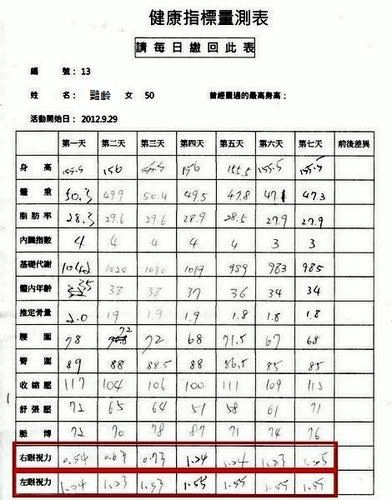 健康指標量測表
請每日繳回此表
編 號：13
姓 名： 女 50 曾經量過的最高身高：
活動開始日：2012.9.29
第一天 第二天 第三天 第四天 第五天 第六天 第七天 前後差異
身高 155.5 156 155.5 156 155.5 155.5 155.5
體重 50.3 49.9 50.4 49.5 47.8 47.1 47.3
脂肪率 28.3 29.6 29.6 28.9 28.5 27.9 27.9
內臟指數 4 4 4 4 4 3 3
基礎代謝 1020 1030 1019 989 983 985
體內年齡 38 38 37 36 34 34
推定骨量 2.0 1.9 1.9 1.9 1.8 1.8 1.8
腰圍 78 72 72 68 71.5 67 68
臀圍 89 88 88.5 88 86.5 85 85
收縮壓 117 104 106 100 111 109 113
舒張壓 72 65 64 51 58 61 71
脈搏 72 70 78 87 71 74 76
右眼視力 0.54 0.63 0.73 1.24 1.24 1.23 1.25
左眼視力 1.24 1.23 1.53 1.55 1.55 1.55 1.55